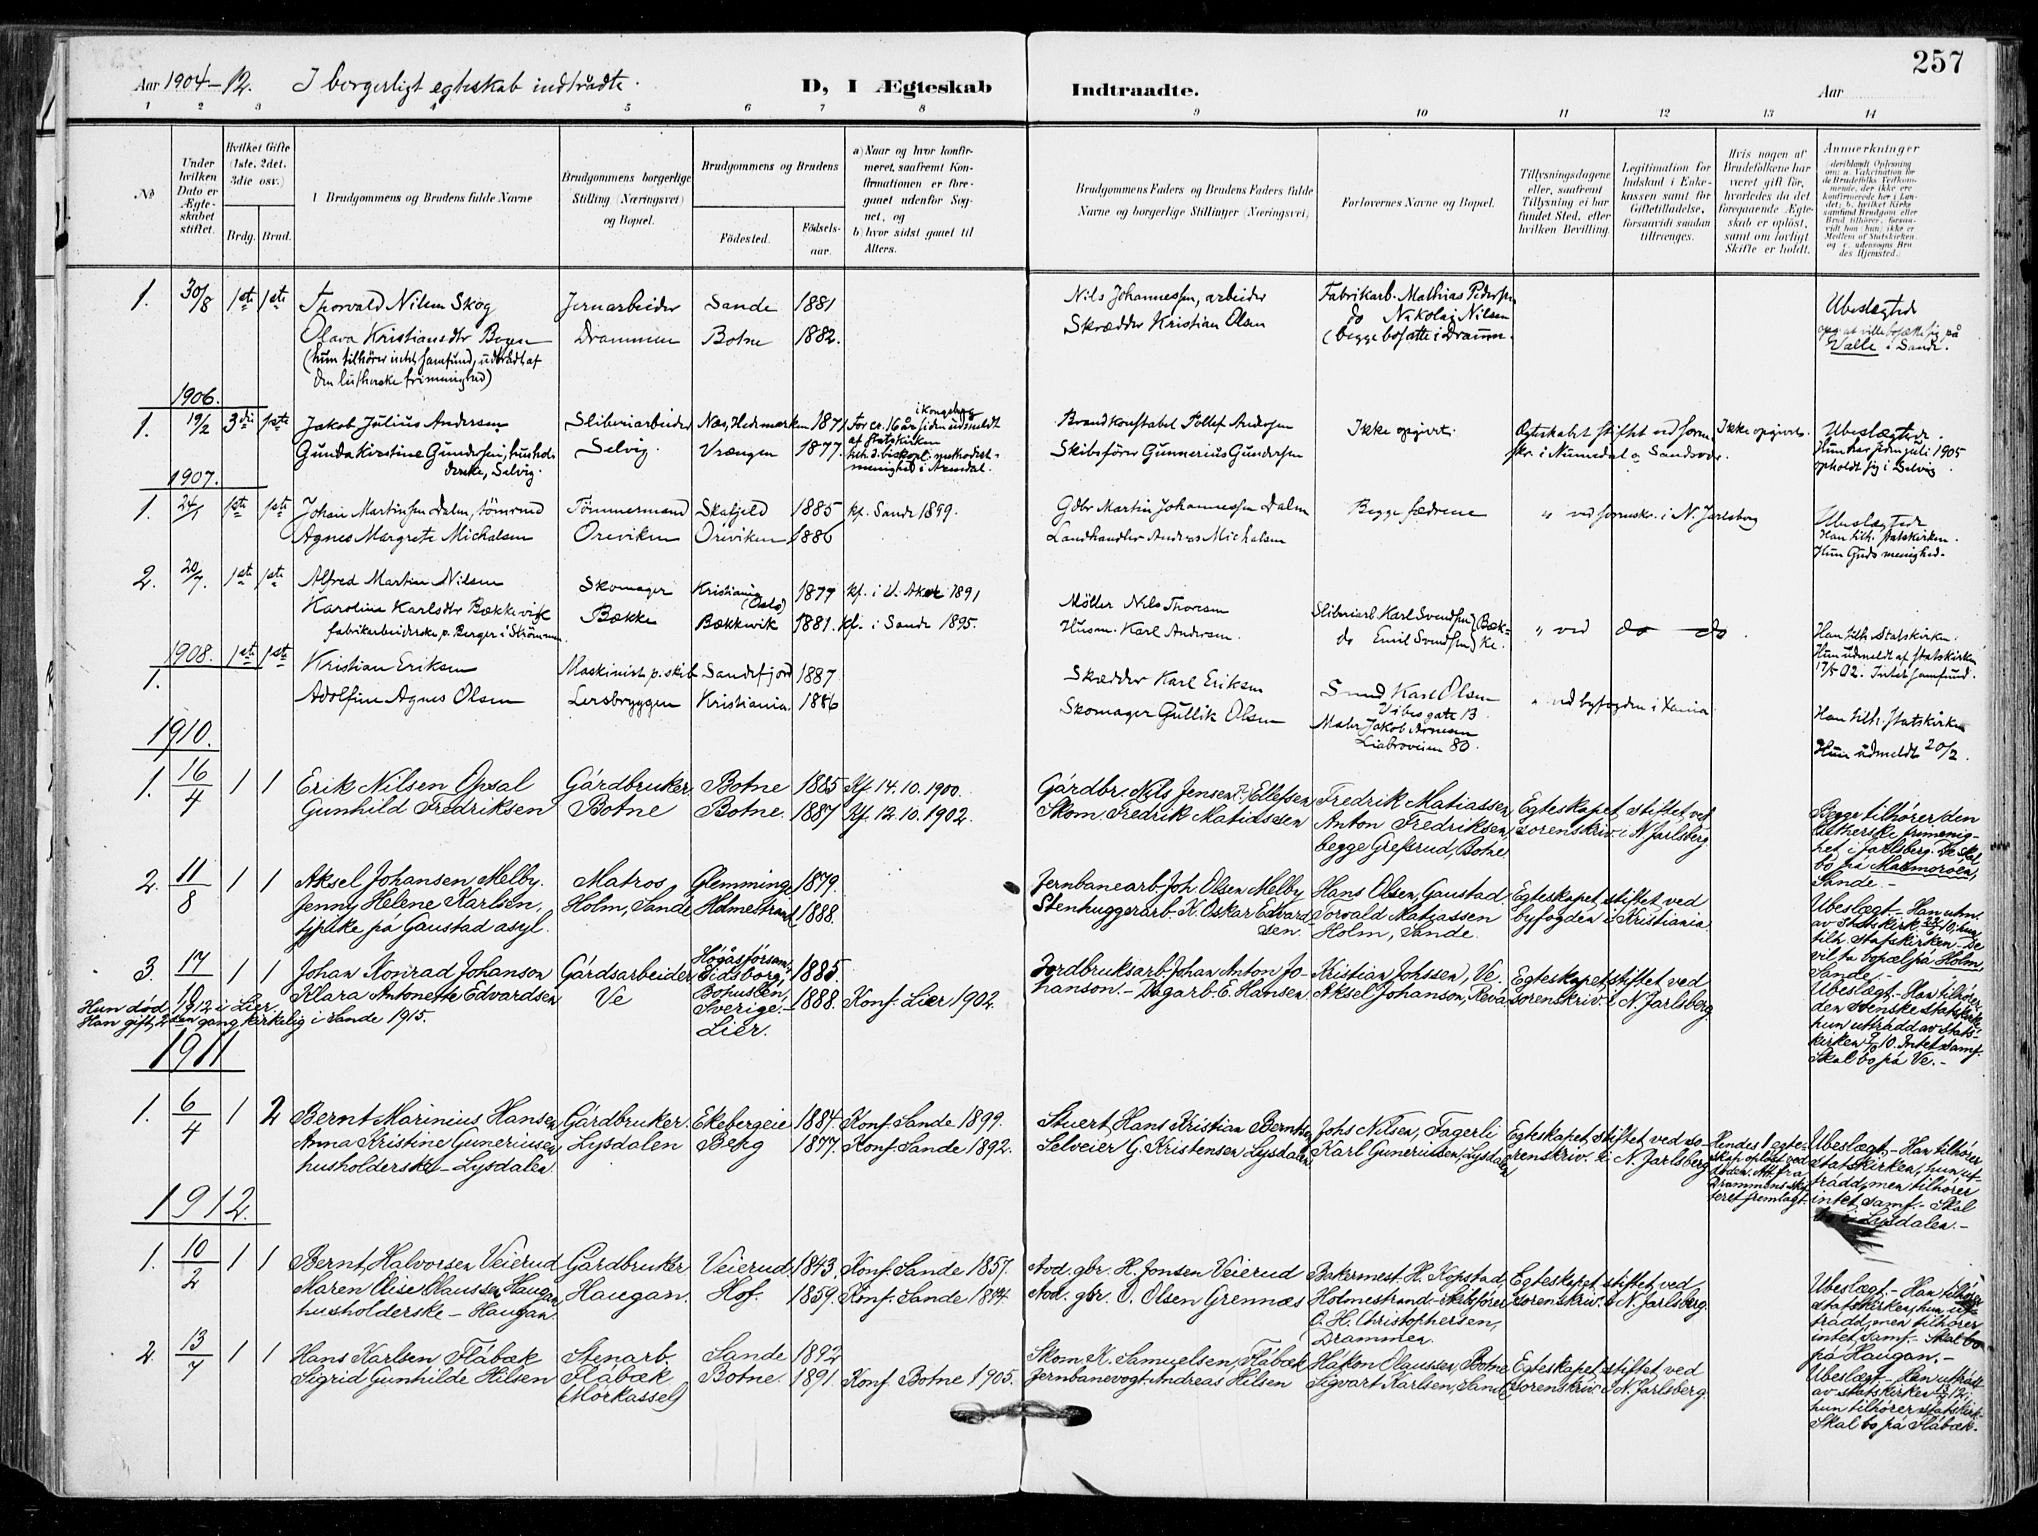 257
Aar 1904–12. I borgerligt egteskab indtrådte.
D, I Ægteskab Indtraadte.
Aar
1 2 3 4 5 6 7 8 9 10 11 12 13 14
No
Under hvilken Dato er Ægteskabet stiftet.
Hvilket Gifte (1ste, 2det, 3die osv.)
Brdg. Brud.
Brudgommens og Brudens fulde Navne
Brudgommens borgerlige Stilling (Næringsvei) og Bopæl.
Brudgommens og Brudens
Fødested. Fødselsaar.
a) Naar og hvor konfirmeret, saafremt Konfirmationen er foregaaet udenfor Sognet, og
b) hvor sidst gaaet til Alters.
Brudgommens Faders og Brudens Faders fulde Navne og borgerlige Stillinger (Næringsvei)
Forlovernes Navne og Bopæl.
Tillysningsdagene eller, saafremt Tillysning ei har fundet Sted, efter hvilken Bevilling.
Legitimation for Indskud i Enkekassen samt for Giftetilladelse, forsaavidt saadan tiltrænges.
Hvis nogen af Brudefolkene har været gift før, hvorledes da det foregaaende Ægteskab er opløst, samt om lovligt Skifte er holdt.
Anmerkninger
1. 30/8 1ste 1ste Thorvald Nilsen Skog Jernarbeider Sande 1881 Nils Johannessen, arbeider Fabrikarb. Mathias Pedersen Ubeslægtede
Olava Kristiansdtr Bogen Drammen Botne 1882. Skrædder Kristian Olsen do Nikolai Nilsen
(hun tilhører intet samfund, udtrådt af (begge bosatte i Dramm. Valle i Sande.
den lutherske frimenighed)
1906.
1. 19/2 3die 1ste Jakob Julius Andersen Sliberiarbeider Næs, Hedemarken 1871 For ca. 16 år siden udmeldt i Kongsberg Brandkonstabel Tollef Andersen Ikke opgivet. Ægteskabet stiftet ved soren- Ikke opgivet. Ubeslægtede.
Gunda Kirstine Gundersen, hushol- Selvig. Vrængen 1877. af statskirken Skibsfører Gunnerius Gundersen skr. i Numedal o Sandsvær. Hun har siden juli 1905
derske, Selvig. tilh. d. biskopl. methodist- opholdt sig i Selvig.
menighed i Arendal.
1907.
1. 24/1 1ste 1ste Johan Martinsen Dalen, tömrmd Tömmermand Skafjeld 1885 kf. Sande 1899. Gdbr Martin Johannessen Dalen Begge fædrene " ved sorenskr. i N. Jarlsberg Ubeslægtede
Agnes Margrete Michalsen Öreviken Öreviken 1886 Landhandler Andreas Michalsen Han tilh. statskirken.
Hun Guds menighed.
2. 20/7. 1ste 1ste Alfred Martin Nilsen Skomager Kristiania (Oslo) 1877 kf. i V. Aker 1891 Möller Nils Thoresen Sliberiarb Karl Svendsen) Bæk-
Karoline Karlsdtr Bækkevik Bække Bækkevik 1881. kf. i Sande 1895. Husm. Karl Andersen. do Emil Svendsen) ke. " ved do do. Han tilh. Statskirken.
fabrikarbeiderske p. Berger i Strömmen. Hun udmeldt af statskirken
17/5 02. Intet samfund.
1908.
1. 1ste 1ste Kristian Eriksen Maskinist p. skib Sandefjord 1887 Skrædder Karl Eriksen Smed Karl Olsen " ved byfogden i Xania Han tilh. statskirken
Adolfine Agnes Olsen Lersbryggen Kristiania. 1886 Skomager Gullik Olsen Vibesgate 13. Hun udmeldt 20/2.
Maler Jakob Arnesen
Liabroveien 80.
1910.
1. 16/4 1 1 Erik Nilsen Opsal Gårdbruker Botne 1885 Kf. 14.10.1900. Gårdbr. Nils Jensen (?) Ellefsen Fredrik Matiassen Egteskapet stiftet ved Begge tilhører den
Gunhild Fredriksen Botne Botne. 1887 Kf. 12.10.1902. Skom. Fredrik Matiassen Anton Fredriksen, sorenskriv. i N. Jarlsberg lutherske frimenig-
begge Grefsrud, Botne. het i Jarlsberg. De skal
bo på Malmoroen,
Sande.-
2. 11/8 1 1 Aksel Johansen Melby. Matros Glemminge 1879. Jernbanearb. Joh. Olsen Melby Hans Olsen, Gaustad Egteskapet stiftet ved Ubeslægt.- Han utm.
Jenny Helene Karlsen, Holm, Sande Holmestrand 1888. Stenhuggerarb. K. Oskar Edvard- Torvald Matiassen byfogden i Kristiania av Statskirk. hun
tjpike på Gaustad asyl. sen. Holm, Sande. tilh. statskirken.- De
vil ta bopæl på Holm,
Sande.-
3. 17/10 1 1 Johan Konrad Johanson Gårdsarbeider Högåsførsam. 1885. Jordbruksarb. Johan Anton Jo- Kristian Johssen, Ve. Egteskapet stiftet ved Ubeslægt.- Han tilhører
Klara Antonette Edvardsen Ve Bohuslen, 1888. Konf. Lier 1902. hanson.- Dagarb. E. Hansen. Aksel Johanson, Reva sorenskriv. i N. Jarlsberg. den svenske statskirke,
Hun død 1912 i Lier. Sverige.- hun utrådd av stats-
Han gift 2den gang kirkelig i Sande 1915. Lier. kirken 10. Intet samf.
Skal bo på Ve.-
1911
1. 6/4 1 2 Bernt Marinius Hansen Gårdbruker. Ekebergeie 1884. Konf. Sande 1899. Stuert Hans Kristian Berntsen Johs Nilsen, Fagerli Egteskapet stiftet ved so- Hendes 1 egte- Ubeslægt.- Han tilhører
Anna Kristine Guneriusen, Lysdalen Berg 1877. Konf. Sande 1892. Selveier G. Kristensen Lysdalen. Karl Guneriussen, Lysdalen renskriv. i N. Jarlsberg skap opløst ved statskirken, hun ut-
husholderske - Lysdalen døden. Att. fra trådd, men tilhører
Drammens skif- intet samf.- Skal
teret fremlagt.- bo i Lysdalen.-
1912.
1. 10/2 1 1 Bernt Halvorsen Veierud Gårdbruker Veierud. 1843. Konf. Sande 1857. Avd. gbr. H. Jonsen Veierud Bakermest. H. Kopstad, Egteskapet stiftet ved Ubeslægt.- Han tilhører
Maren Elise Olaussen Haugan, Haugan. Hof. 1859. Konf. Sande 1874. Avd. gbr. O. Olsen Grennæs Holmestrand.- Skibsfører sorenskriv. i N. Jarlsberg. statskirken, hun ut-
husholderske - Haugan. O. H. Christophersen, trådd, men tilhører
Drammen. intet samf.- Skal bo
på Haugan.-
2. 13/7 1 1 Hans Karlsen Flåbæk Stenarb. Sande 1892 Skom. K. Samuelsen, Flåbæk Håkon Olaussen, Botne Egteskapet stiftet ved Ubeslægt.- Han utrådt
Sigrid Gunhilde Hilsen Flåbæk Botne. 1891. Konf. Botne 1905. Jernbanevogt. Andreas Hilsen Sigvart Karlsen, Sande sorenskriv. i N. Jarlsberg. av statskirken 12;
(Mörkassel) hun tilhører statskirk.
Skal bo på Flåbæk.